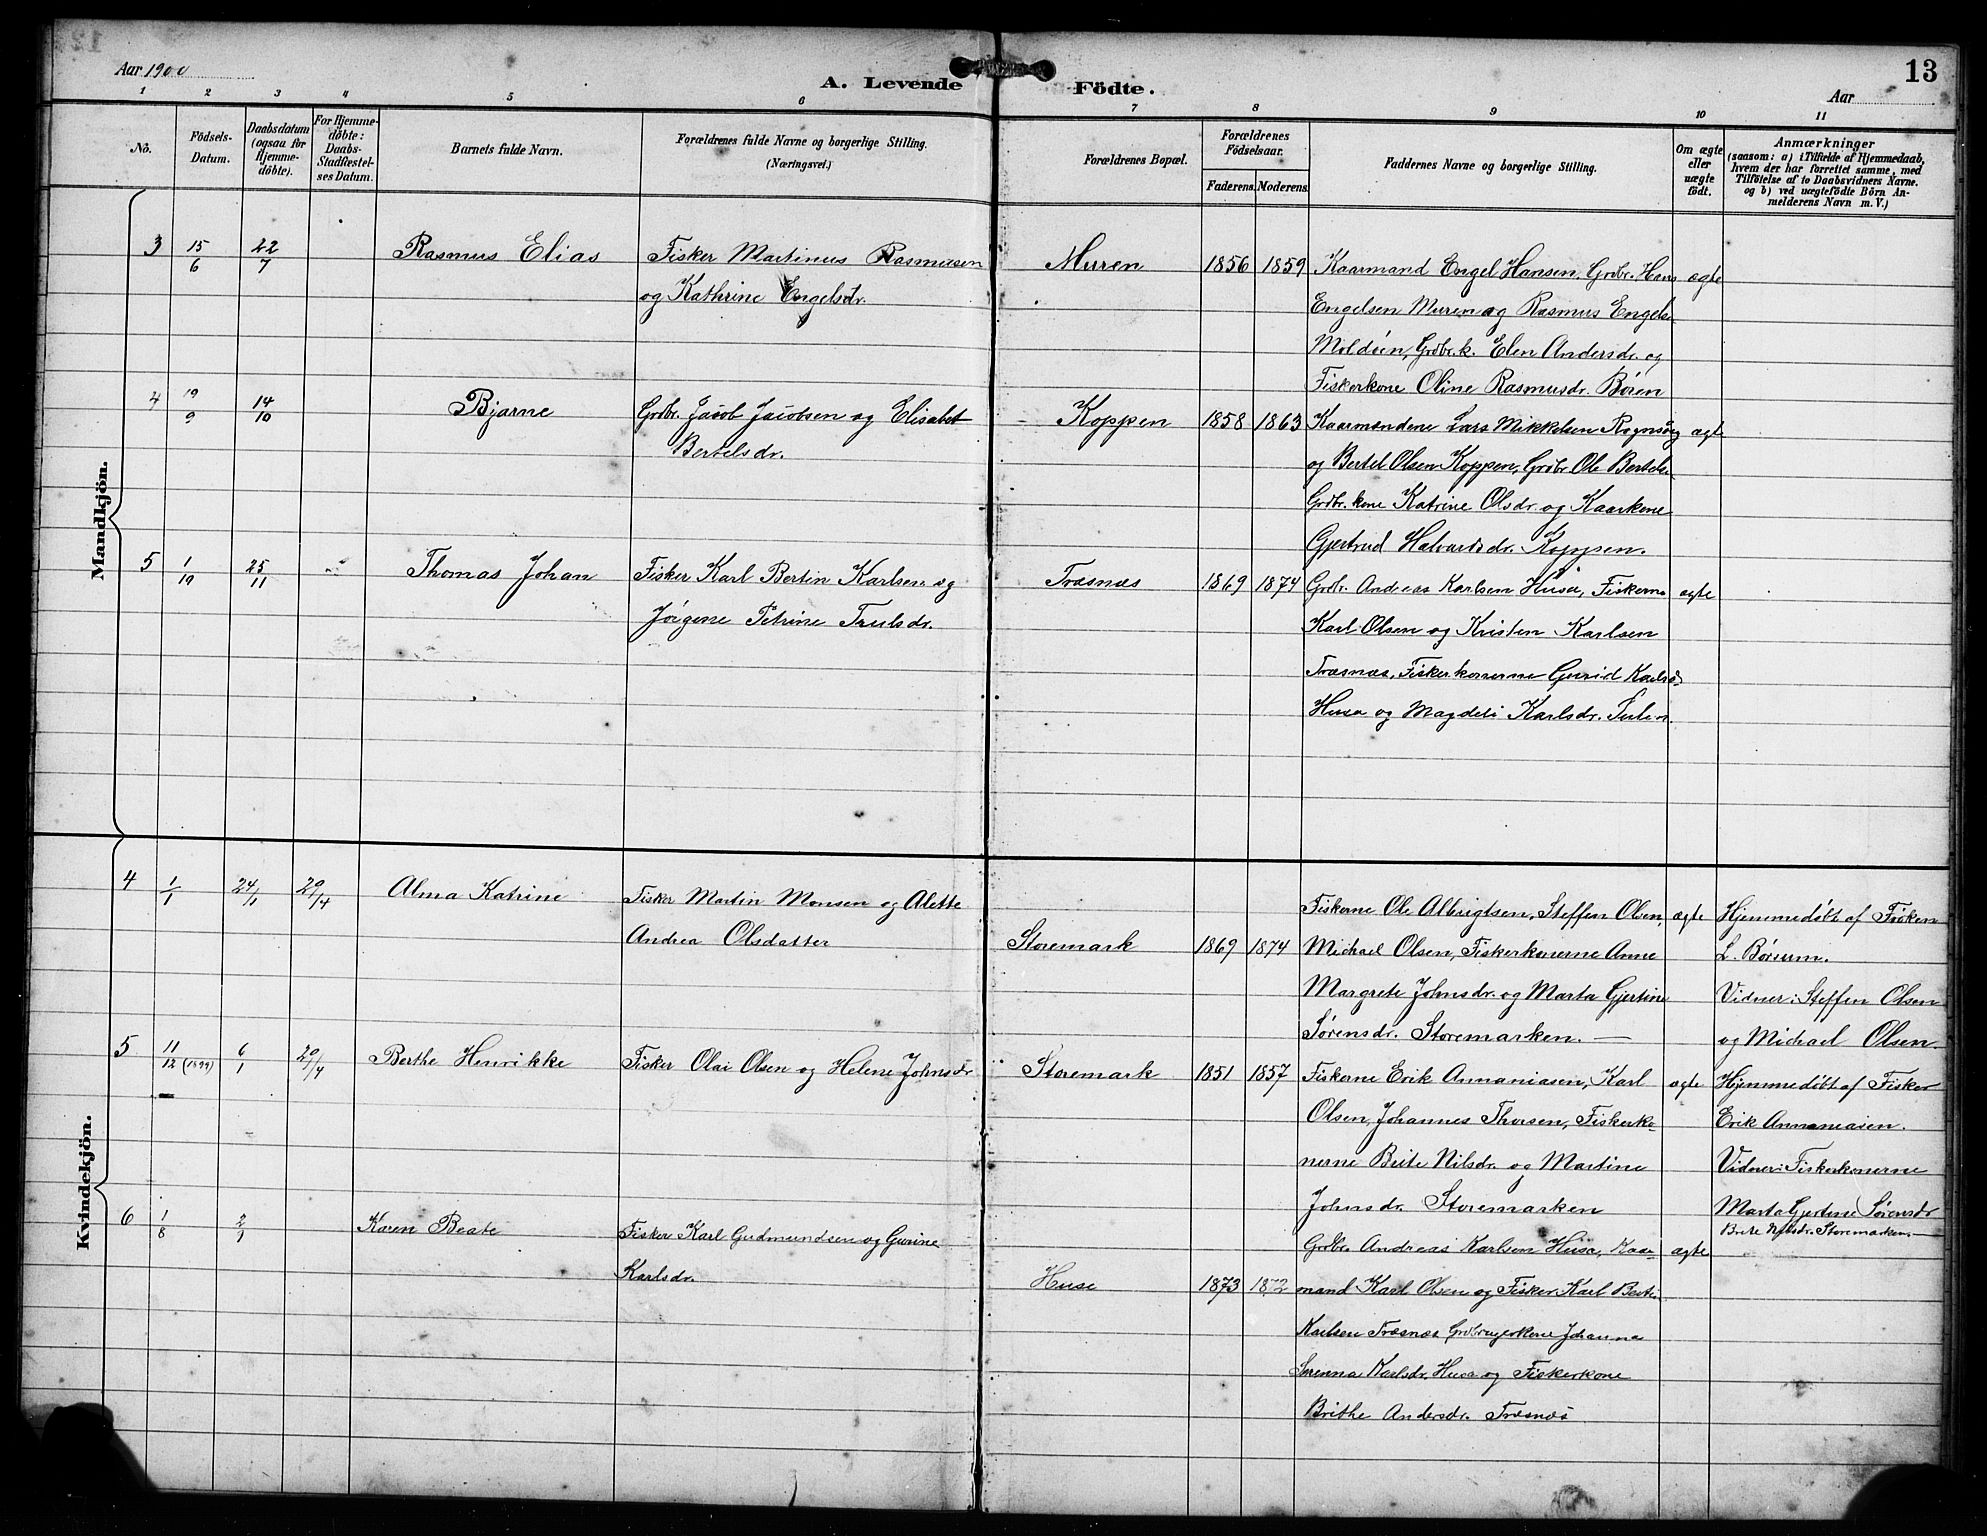 Aar 1900
A. Levende Födte.
13
Aar
1 2 3 4 5 6 7 8 9 10 11
No.
Födsels-Datum.
Daabsdatum (ogsaa for Hjemme-döbte).
For Hjemme-döbte: Daabs-Stadfæstel-ses Datum.
Barnets fulde Navn.
Forældrenes fulde Navne og borgerlige Stilling.
(Næringsvei.)
Forældrenes Bopæl.
Forældrenes Födselsaar.
Faderens. Moderens.
Faddernes Navne og borgerlige Stilling.
Om ægte eller uægte födt.
Anmærkninger
(saasom: a) i Tilfælde af Hjemmedaab,
hvem der har forrettet samme, med
Tilföielse af to Daabsvidners Navne.
og b) ved uægtefödte Börn An-
melderens Navn m. V.)
Mandkjön.
3 15/6 22/7 Rasmus Elias
Fisker Martinus Rasmussen
og Kathrine Engelsdr.
Muren 1856 1859
Kaarmand Engel Hansen, Grdbr. Hans
Engelsen Muren og Rasmus Engels.
Moldöen, Grdbr.k. Elen Andersdr. og
Fiskerkone Oline Rasmusdr. Bören
ægte
4 19/9 14/10 Bjarne
Grdbr. Jacob Jacobsen og Elisabet
Bertelsdr.
Koppen 1858 1863
Kaarmændene Lars Mikkelsen
og Bertel Olsen Koppen, Grdbr. Ole Bertels.
Grdbr. kone Katrine Olsdr. og Kaarkone
Gjertrud Halvardsdr. Koppen.
ægte
5 1/19 25/11 Thomas Johan
Fisker Karl Bertin Karlsen og
Jørgine Petrine Trulsdr.
Træsnæs 1869 1874
Grdbr. Andreas Karlsen Husa, Fiskerne
Karl Olsen og Kristen Karlsen
Træsnæs, Fiskerkonerne Gurid Karlsd.
Husa og Magdeli Karlsdr.
ægte
Kvindekjön.
4 1/1 24/1 29/4 Alma Katrine
Fisker Martin Monsen og Alette
Andrea Olsdatter
Storemark 1869 1874
Fiskerne Ole Albrigtsen, Steffen Olsen,
Michael Olsen, Fiskerkonerne Anne
Margrete Johnsdr. og Marta Gjertine
Sørensdr. Storemarken. —
ægte
Hjemmedøbt af Frøken
L. Börsum.
Vidner: Steffen Olsen
og Michael Olsen.
5 11/12 (1899) 6/1 29/4 Berthe Henrikke
Fisker Olai Olsen og Helene Johnsdr
Storemark 1851 1857
Fiskerne Erik Annaniasen, Karl
Olsen, Johannes Thorsen, Fiskerko-
nerne Brite Nilsdr. og Martine
Johnsdr. Storemarken
ægte
Hjemmedøbt af Fisker
Erik Annaniasen.
Vidner: Fiskerkonerne
Marta Gjertine Sørensdr
Brite Nilsdr. Storemarken. —
6 1/8 2/9 Karen Beate
Fisker Karl Gudmundsen og Gurine
Karlsdr.
Huse 1873 1872
Grdbr. Andreas Karlsen Husa, Kaar-
mand Karl Olsen og Fisker Karl Berti.
Karlsen Træsnæs Grdbrugerkone Johanna
Serenna Karlsdr. Husa og Fiskerkone
Brithe Andersdr. Træsnæs
ægte